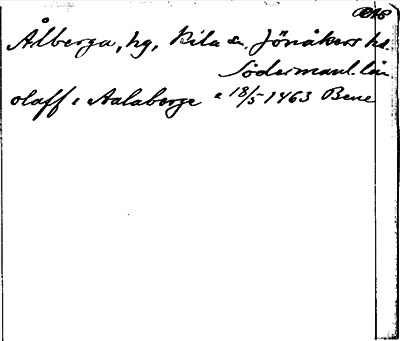 Ålberga, hg, Kila sn. Jönåkers hd.
Södermanl. län
olaff i Aalaberge 18/5 1463 Bene